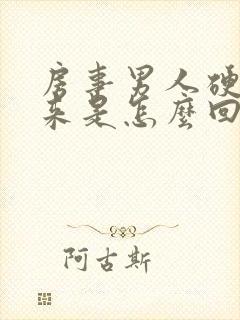 房事男人硬
来是怎麼回
阿古斯